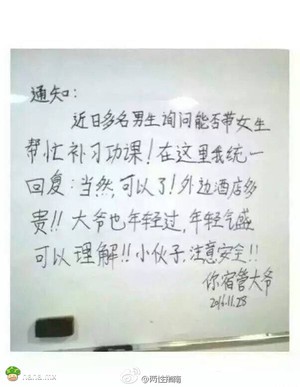 通知:
近日多名男生询问能否带女生
帮忙补习功课!在这里我统一
回复:当然,可以了!外边酒店多
贵!!大爷也年轻过,年轻气盛
可以理解!!小伙子,注意安全!!
你宿管大爷
2016.11.28
nana.me
@两性指南